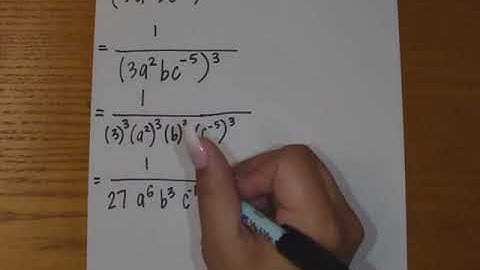 = 1 / (3a²bc⁻⁵)³
= 1 / (3)³(a²)³(b)³(c⁻⁵)³
= 1 / 27 a⁶ b³ c⁻